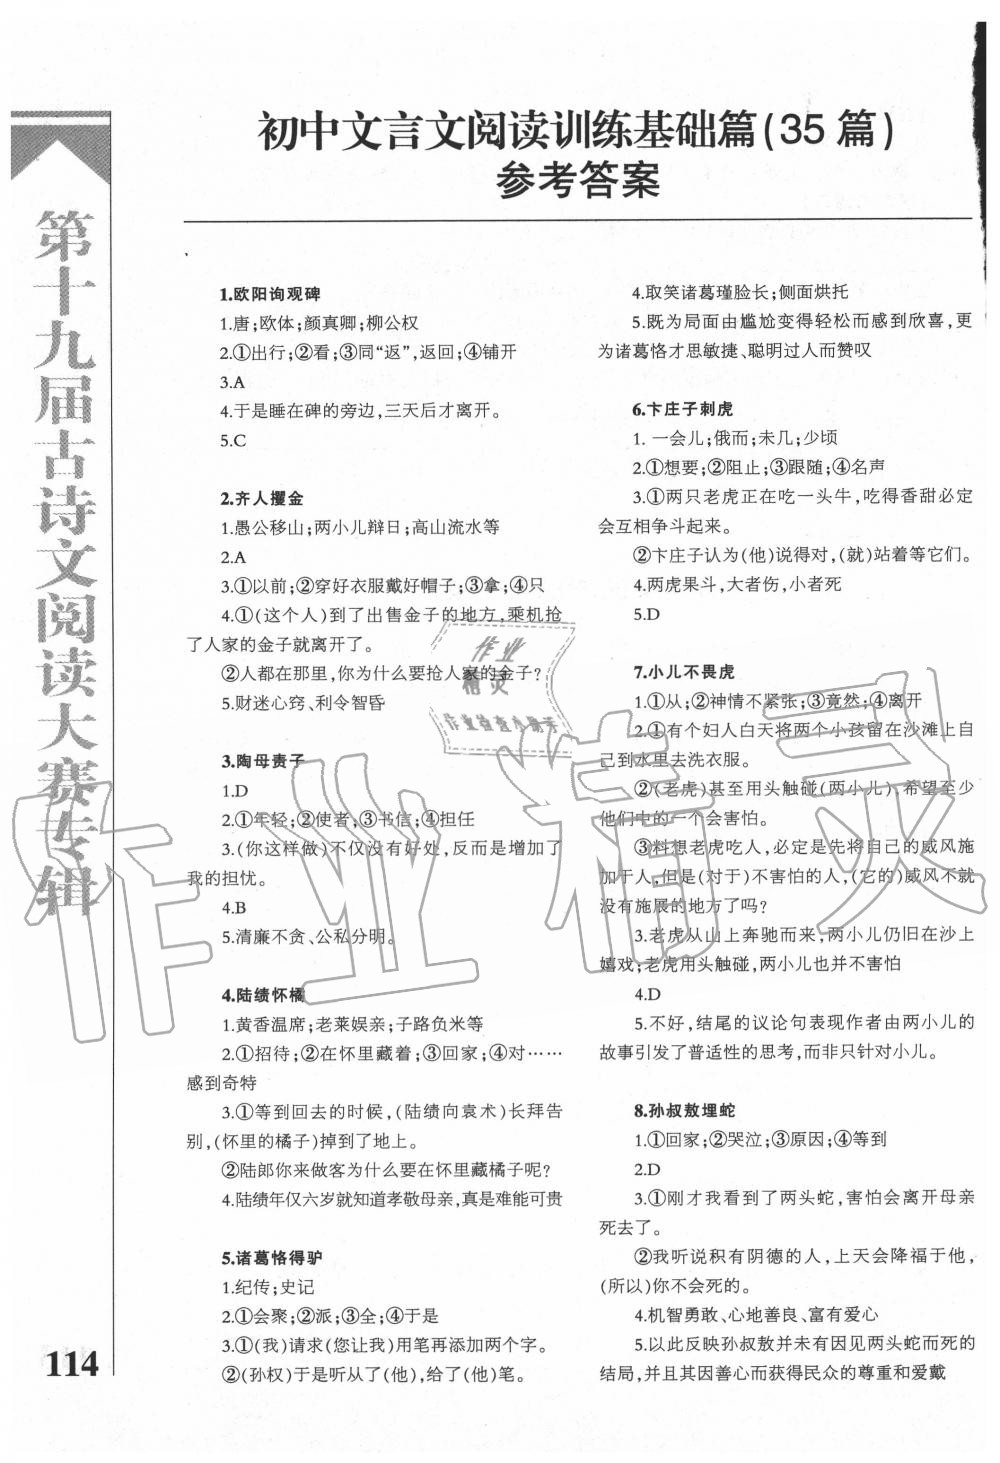 初中文言文阅读训练基础篇(35篇)
参考答案
第十九届古诗文阅读大赛专辑
1.欧阳询观碑
1.唐;欧体;颜真卿;柳公权
2.①出行;②看;③同“返”,返回;④铺开
3.A
4.于是睡在碑的旁边,三天后才离开。
5.C
2.齐人攫金
1.愚公移山;两小儿辩日;高山流水等
2.A
3.①以前;②穿好衣服戴好帽子;③拿;④只
4.①(这个人)到了出售金子的地方,乘机抢
了人家的金子就离开了。
②人都在那里,你为什么要抢人家的金子?
5.财迷心窍、利令智昏
3.陶母责子
1.D
2.①年轻;②使者;③书信;④担任
3.(你这样做)不仅没有好处,反而是增加了
我的担忧。
4.B
5.清廉不贪、公私分明。
4.陆绩怀橘
1.黄香温席;老莱娱亲;子路负米等
2.①招待;②在怀里藏着;③回家;④对……
感到奇特
3.①等到回去的时候,(陆绩向袁术)长拜告
别,(怀里的橘子)掉到了地上。
②陆郎你来做客为什么要在怀里藏橘子呢?
4.陆绩年仅六岁就知道孝敬母亲,真是难能可贵
5.诸葛恪得驴
1.纪传;史记
2.①会聚;②派;③全;④于是
3.①(我)请求(您让我)用笔再添加两个字。
②(孙权)于是听从了(他),给了(他)笔。
4.取笑诸葛瑾脸长;侧面烘托
5.既为局面由尴尬变得轻松而感到欣喜,更
为诸葛恪才思敏捷、聪明过人而赞叹
6.卞庄子刺虎
1. 一会儿;俄而;未几;少顷
2.①想要;②阻止;③跟随;④名声
3.①两只老虎正在吃一头牛,吃得香甜必定
会互相争斗起来。
②卞庄子认为(他)说得对,(就)站着等它们。
4.两虎果斗,大者伤,小者死
5.D
7.小儿不畏虎
1.①从;②神情不紧张;③竟然;④离开
2.①有个妇人白天将两个小孩留在沙滩上自
己到水里去洗衣服。
②(老虎)甚至用头触碰(两小儿),希望至少
他们中的一个会害怕。
③料想老虎吃人,必定是先将自己的威风施
加于人,但是(对于)不害怕的人,(它的)威风不就
没有施展的地方了吗?
3.老虎从山上奔驰而来,两小儿仍旧在沙上
嬉戏;老虎用头触碰,两小儿也并不害怕
4.D
5.不好,结尾的议论句表现作者由两小儿的
故事引发了普适性的思考,而非只针对小儿。
8.孙叔敖埋蛇
1.①回家;②哭泣;③原因;④等到
2.D
3.①刚才我看到了两头蛇,害怕会离开母亲
死去了。
②我听说积有阴德的人,上天会降福于他,
(所以)你不会死的。
4.机智勇敢、心地善良、富有爱心
5.以此反映孙叔敖并未有因见两头蛇而死的
结局,并且其因善心而获得民众的尊重和爱戴
114
作业精灵
作业
精灵
作业检查小助手